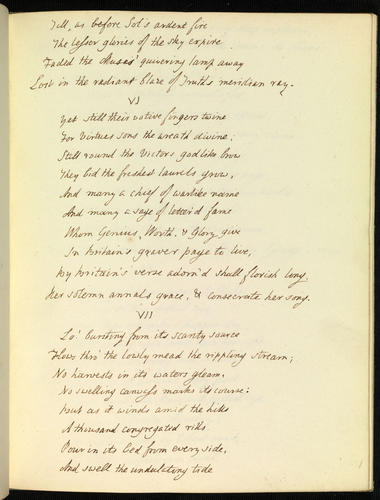 Till, as before Sol's ardent fire
The lesser glories of the sky expire
Faded the Muses' quivering lamp away
Lost in the radiant blaze of Truth's meridian ray.
VI
Yet still their votive fingers twine
For Virtues sons the wreath divine;
Still round the Victors godlike brow
They bid the freshest laurels grow,
And many a chief of warlike name
And many a sage of letter'd fame
Whom Genius, Worth, & Glory give
In Britain's graver page to live,
By Britain's verse adorn'd shall florish long
Her solemn annals grace, & consecrate her song.
VII
Lo! bursting from its scanty source
Flows thro' the lowly mead the rippling stream;
No harvests in its waters gleam,
No swelling canvass marks its course:
But as it winds amid the hills
A thousand congregated rills
Pour in its bed from every side,
And swell the undulating tide